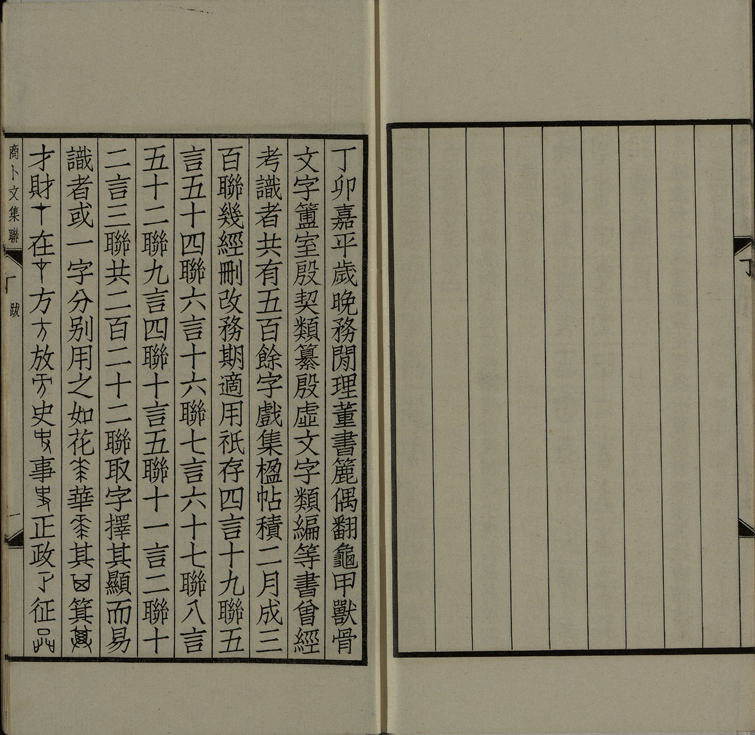 丁卯嘉平歲晚務閒理董書簏偶翻龜甲獸骨
文字簠室殷契類纂殷虛文字類編等書曾經
考識者共有五百餘字戲集楹帖積二月成三
百聯幾經刪改務期適用祇存四言十九聯五
言五十四聯六言十六聯七言六十七聯八言
五十二聯九言四聯十言五聯十一言二聯十
二言三聯共二百二十二聯取字擇其顯而易
識者或一字分別用之如花華其箕
才財在方放史事正政征
商卜文集聯
跋
一